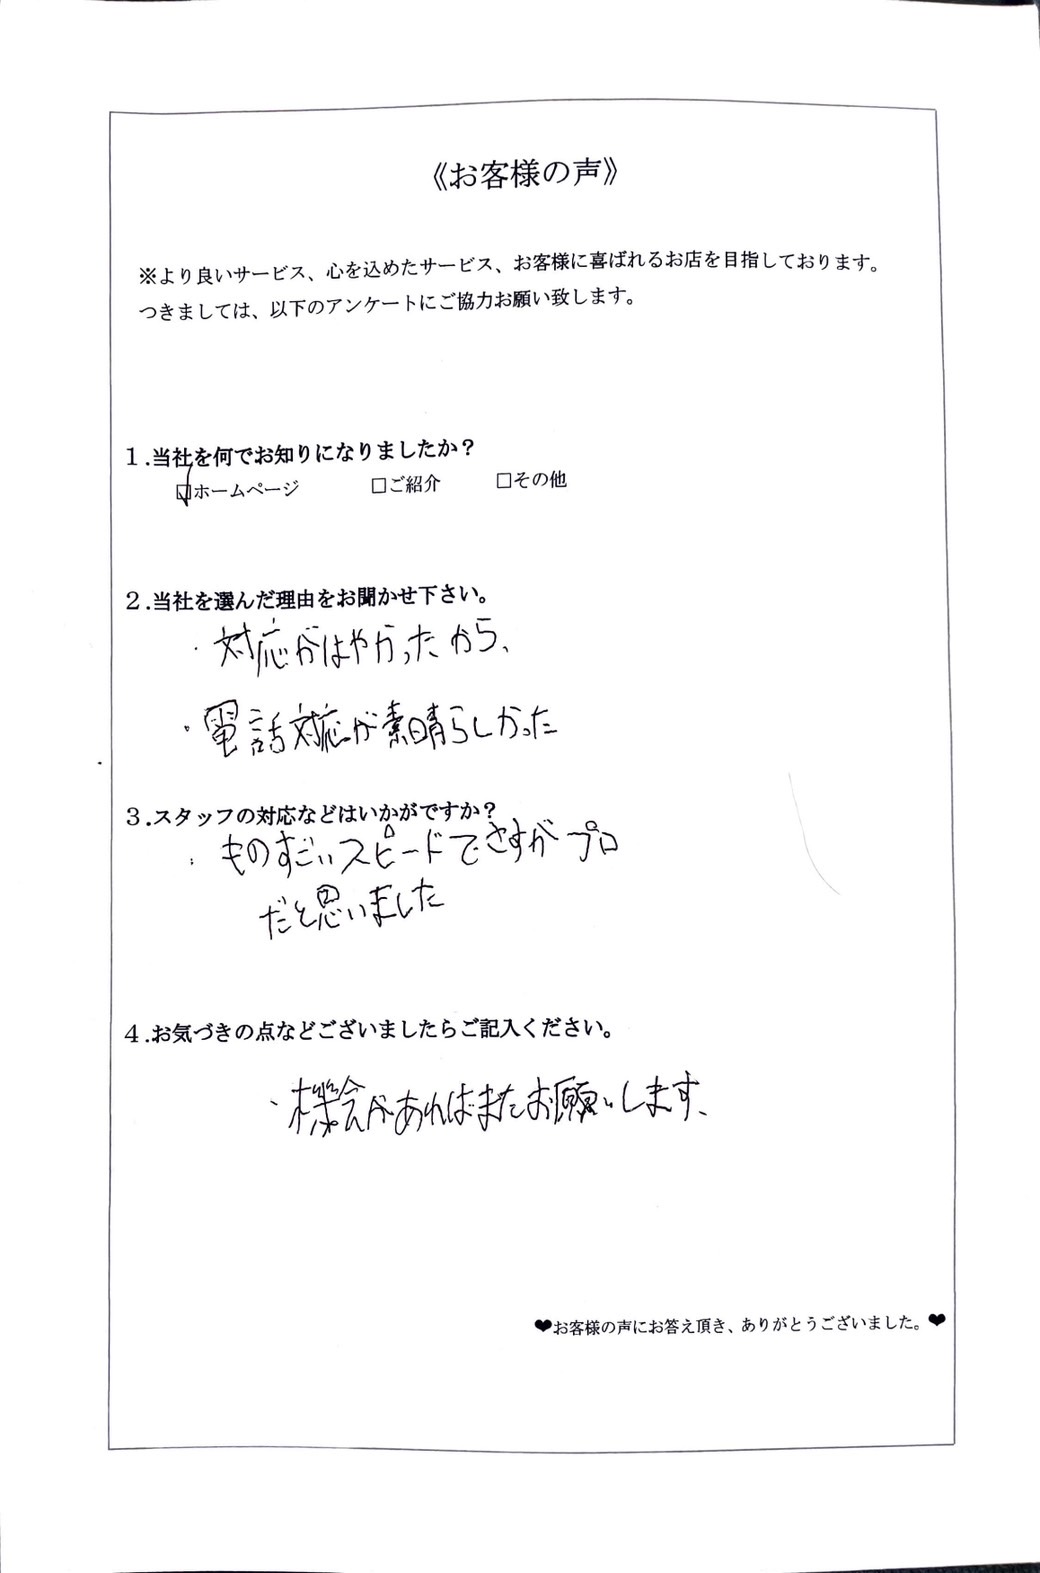 《お客様の声》
※より良いサービス、心を込めたサービス、お客様に喜ばれるお店を目指しております。
つきましては、以下のアンケートにご協力お願い致します。
１.当社を何でお知りになりましたか？
☑ホームページ □ご紹介 □その他
２.当社を選んだ理由をお聞かせ下さい。
・対応がはやかったから、
・電話対応が素晴らしかった
３.スタッフの対応などはいかがですか？
・ものすごいスピードでさすがプロ
だと思いました
４.お気づきの点などございましたらご記入ください。
・機会があればまたお願いします、
❤お客様の声にお答え頂き、ありがとうございました。❤